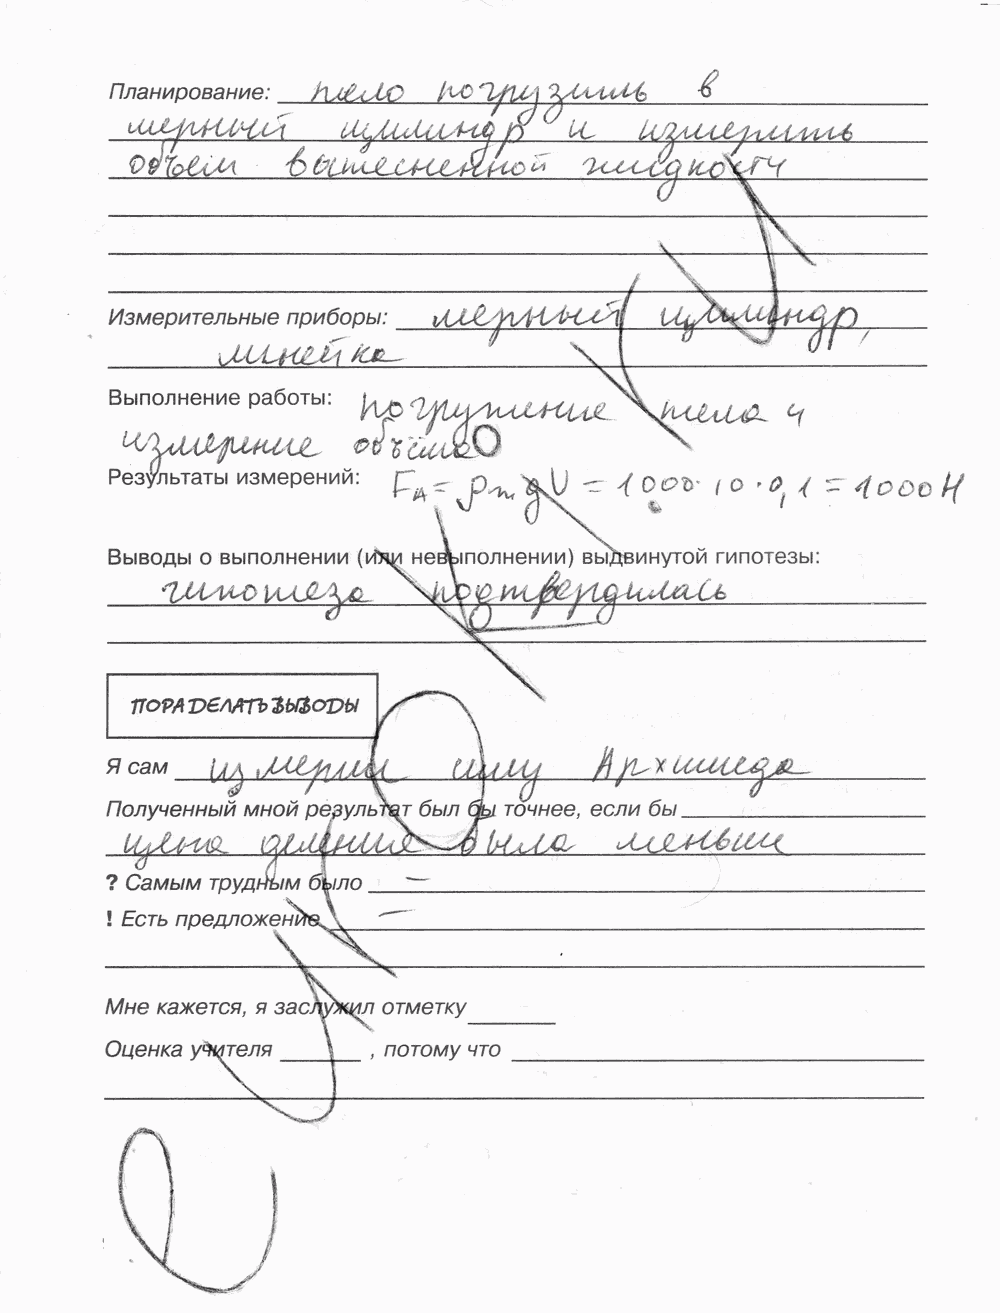 Планирование: тело погрузить в
мерный цилиндр и измерить
объём вытесненной жидкости
Измерительные приборы: мерный цилиндр,
линейка
Выполнение работы: погружение тела и
измерение объёма
Результаты измерений: FA = ρж gV = 1000·10·0,1 = 1000 Н
Выводы о выполнении (или невыполнении) выдвинутой гипотезы:
гипотеза подтвердилась
ПОРА ДЕЛАТЬ ВЫВОДЫ
Я сам измерил силу Архимеда
Полученный мной результат был бы точнее, если бы
цена деления была меньше
? Самым трудным было –
! Есть предложение –
Мне кажется, я заслужил отметку
Оценка учителя , потому что